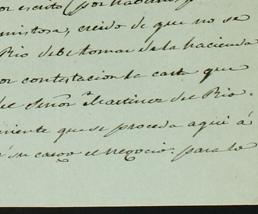 por escrito (por
mistosa, creido de que no se
Rio debe tomar de la hacienda
por contestacion la carta que
del Señor Martinez del Rio.
niente que se proceda aqui á
á su cargo el negocio. para lo